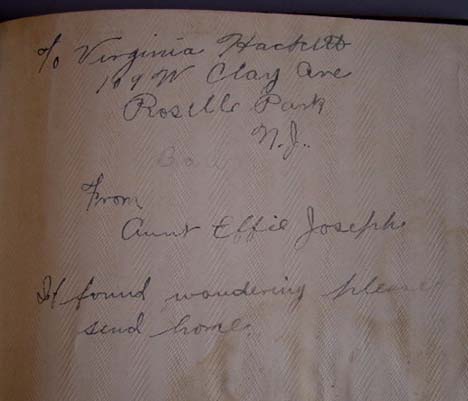 To Virginia Hackett
109 W Clay Ave
Roselle Park
N.J.
From
Aunt Effie Joseph
If found wandering please
send home.